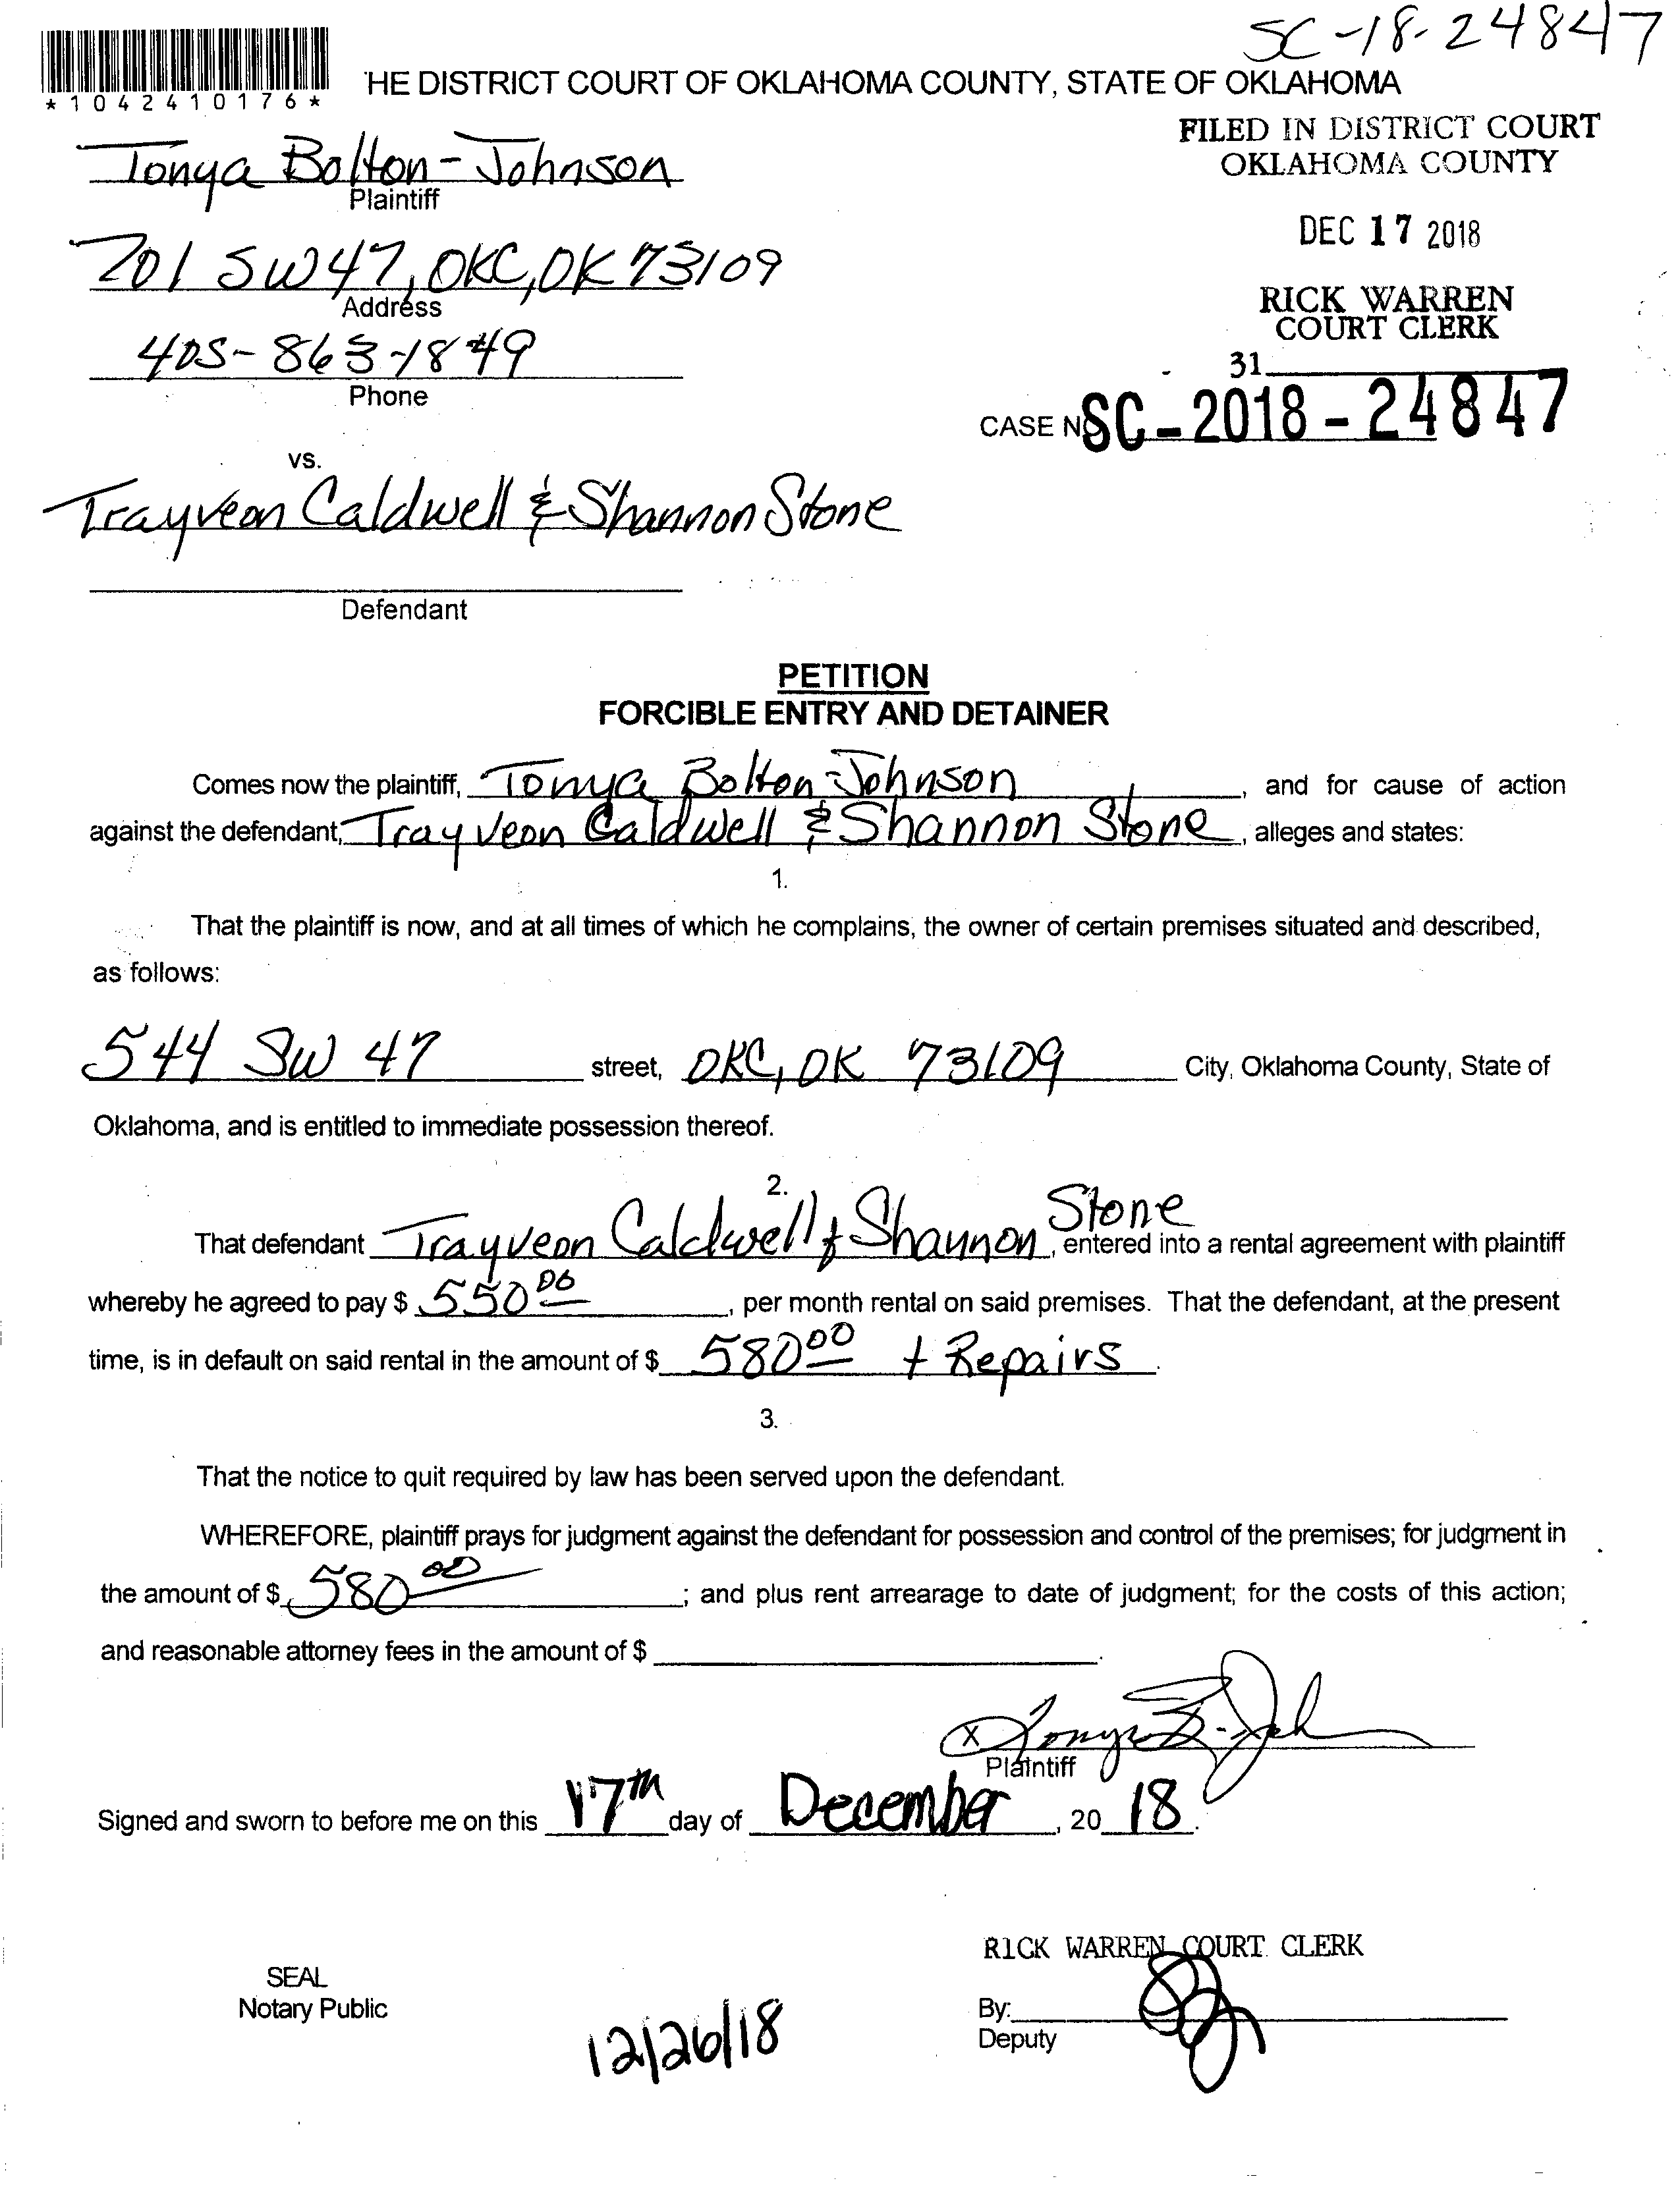 SC-18-24847
*1042410176*
HE DISTRICT COURT OF OKLAHOMA COUNTY, STATE OF OKLAHOMA
FILED IN DISTRICT COURT
OKLAHOMA COUNTY
Tonya Bolton-Johnson
Plaintiff
DEC 17 2018
701 SW 47, OKC, OK 73109
Address
RICK WARREN
COURT CLERK
405-863-1849
Phone
31
CASE NO SC-2018-24847
vs.
Trayveon Caldwell & Shannon Stone
Defendant
PETITION
FORCIBLE ENTRY AND DETAINER
Comes now the plaintiff, Tonya Bolton-Johnson, and for cause of action
against the defendant, Trayveon Caldwell & Shannon Stone, alleges and states:
1.
That the plaintiff is now, and at all times of which he complains, the owner of certain premises situated and described,
as follows:
544 SW 47 street, OKC, OK 73109 City, Oklahoma County, State of
Oklahoma, and is entitled to immediate possession thereof.
2.
That defendant Trayveon Caldwell & Shannon Stone, entered into a rental agreement with plaintiff
whereby he agreed to pay $ 550.00, per month rental on said premises. That the defendant, at the present
time, is in default on said rental in the amount of $ 580.00 + Repairs.
3.
That the notice to quit required by law has been served upon the defendant.
WHEREFORE, plaintiff prays for judgment against the defendant for possession and control of the premises; for judgment in
the amount of $ 580.00; and plus rent arrearage to date of judgment; for the costs of this action;
and reasonable attorney fees in the amount of $
X Tonya B-Joh
Plaintiff
Signed and sworn to before me on this 17th day of December, 2018.
RICK WARREN COURT CLERK
SEAL
Notary Public
By:
Deputy
12/26/18